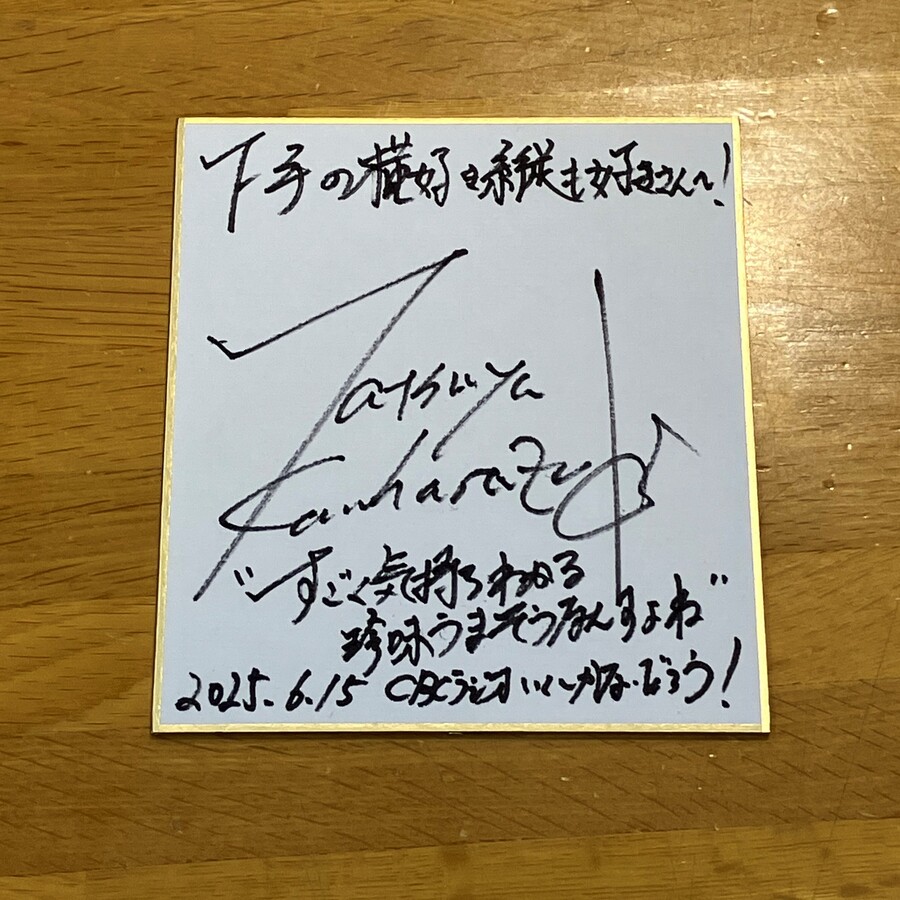 下手の横好き縦も好きさんへ!
Tatsuya
Kawharazuka♪
"すごく気持ちわかる
珍味うまそうなんすよね"
2025.6.15 CBCラジオ いいかないだろう!